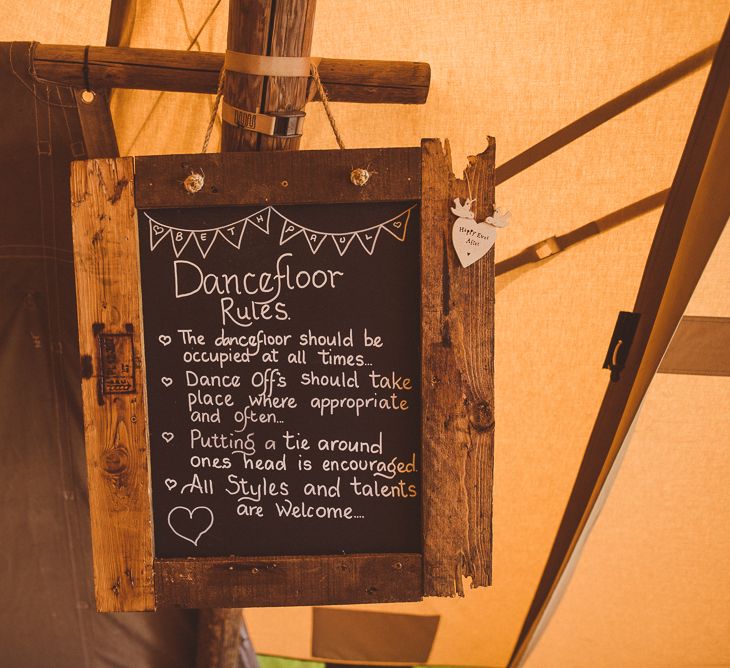 ♡ BETH ♡ PAUL ♡
Dancefloor
Rules.
♡ The dancefloor should be
occupied at all times...
♡ Dance Off's should take
place where appropriate
and often...
♡ Putting a tie around
ones head is encouraged.
♡ All Styles and talents
are welcome....
Happy Ever
After